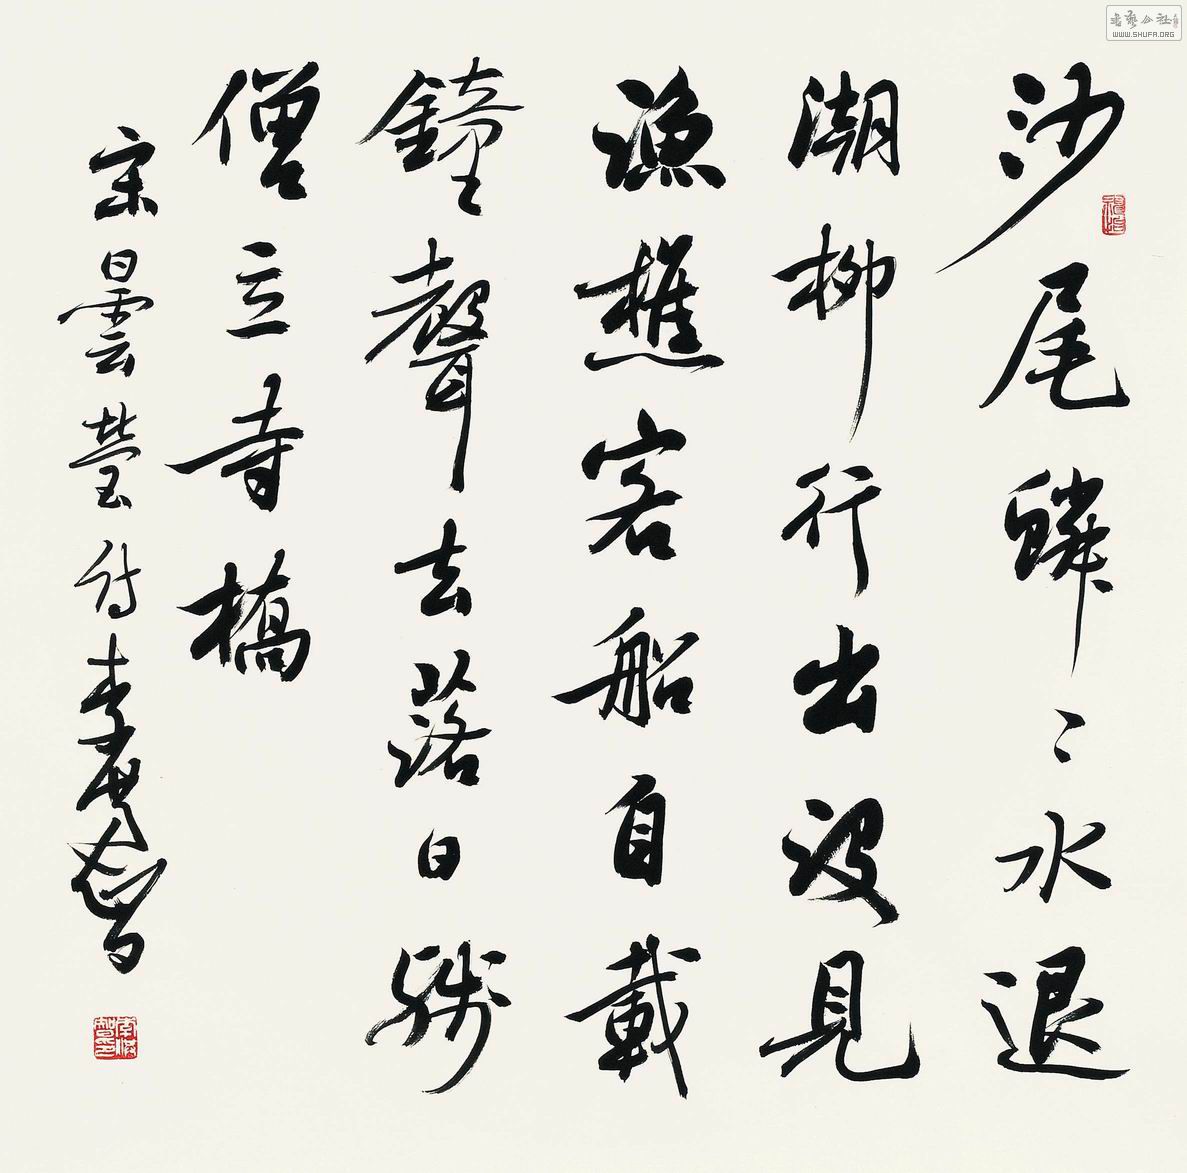 沙尾鱗〻水退
潮柳行出沒見
漁樵客船自載
鐘聲去落日殘
僧立寺橋
宋曇瑩詩李
書藝公社
WWW.SHUFA.ORG